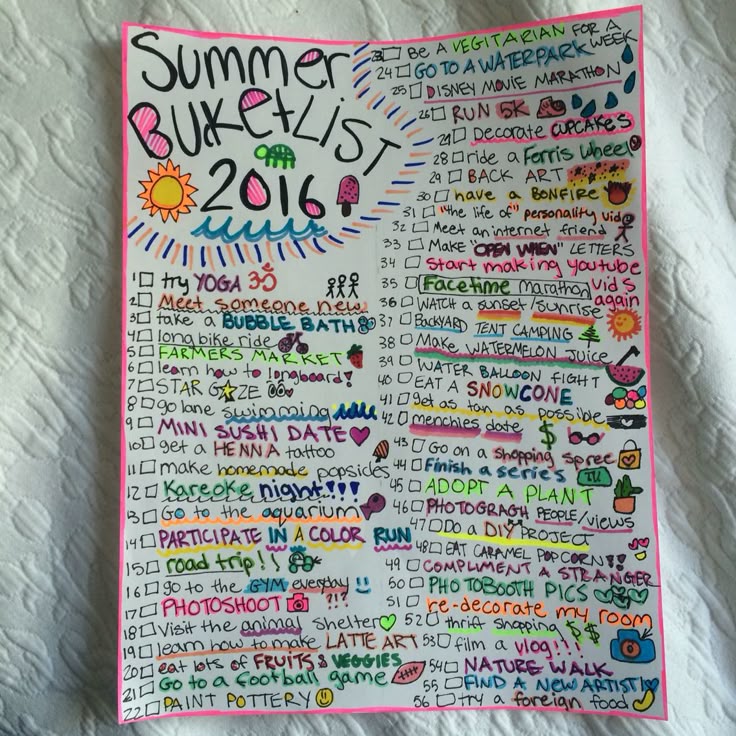 Summer
BUKetLiST
2016
1 try YOGA ॐ
2 Meet someone new
3 take a BUBBLE BATH
4 long bike ride
5 FARMERS MARKET
6 learn how to longboard!
7 STAR GAZE
8 go lane swimming
9 MINI SUSHI DATE
10 get a HENNA tattoo
11 make homemade popsicles
12 Kareoke night!!!
13 Go to the aquarium
14 PARTICIPATE IN A COLOR RUN
15 road trip!!
16 go to the GYM everyday
17 PHOTOSHOOT !?!?
18 Visit the animal shelter
19 learn how to make LATTE ART
20 eat lots of FRUITS & VEGGIES
21 Go to a football game
22 PAINT POTTERY
23 BE A VEGITARIAN FOR A WEEK
24 GO TO A WATERPARK
25 DISNEY MOVIE MARATHON
26 RUN 5K
27 Decorate CUPCAKES
28 ride a Ferris wheel
29 BACK ART
30 have a BONFIRE
31 "the life of" personality vid
32 Meet an internet friend
33 Make "OPEN WHEN" LETTERS
34 Start making youtube vids again
35 Facetime marathon
36 WATCH a sunset/sunrise
37 BACKYARD TENT CAMPING
38 Make WATERMELON JUICE
39 WATER BALLOON FIGHT
40 EAT A SNOWCONE
41 get as tan as possible
42 menchies date $
43 Go on a shopping spree
44 Finish a series TV
45 ADOPT A PLANT
46 PHOTOGRAGH PEOPLE/views
47 Do a DIY PROJECT
48 EAT CARAMEL POPCORN!!
49 COMPLIMENT A STRANGER
50 PHOTOBOOTH PICS
51 re-decorate my room
52 thrift shopping $$
53 film a vlog!!!
54 NATURE WALK
55 FIND A NEW ARTIST
56 try a foreign food